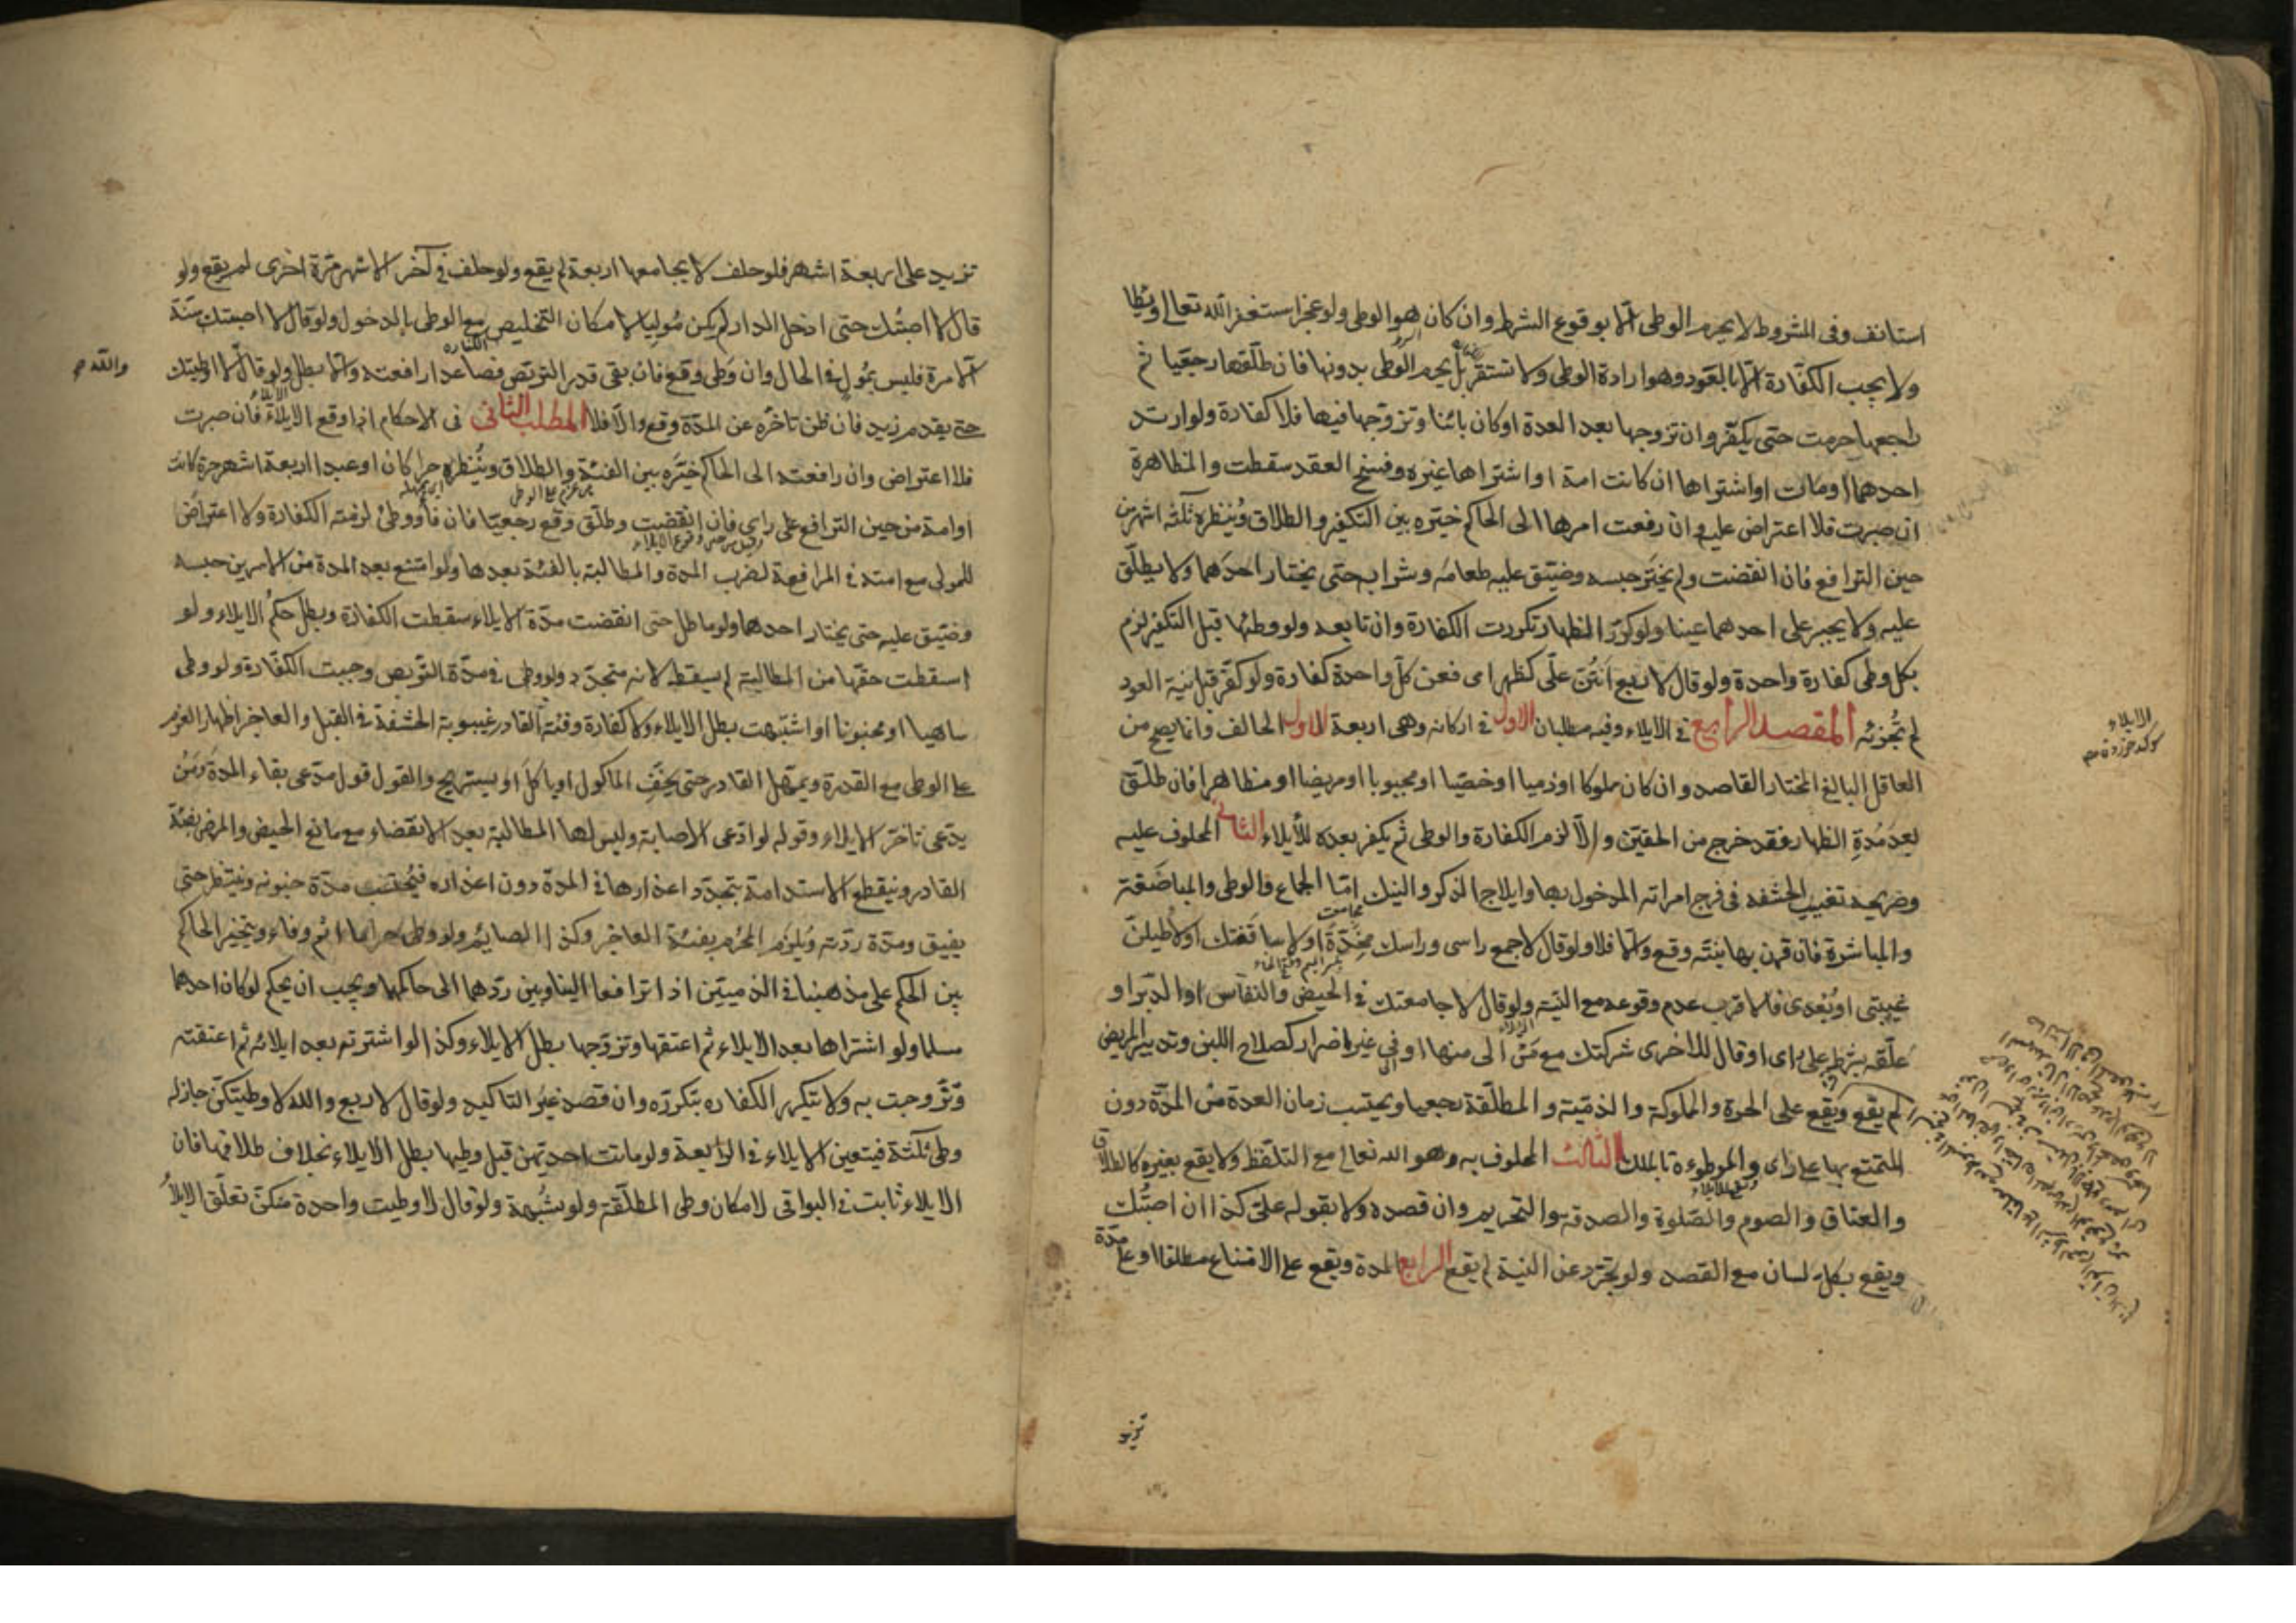 استانف وفى المشروط لا يحرم الوطى الا بوقوع الشرط وان كان هو الوطى ولو عجز استغفر الله تعالى ويطا
ولا يجب الكفارة الا بالعود وهو ارادة الوطى ولا تستقر بل يحرم الوطى بدونها فان طلقها رجعيا ثم
راجعها حرمت حتى يكفر وان تزوجها بعد العدة او كان بائنا وتزوجها فيها فلا كفارة ولو ارتد
احدهما او مات او اشتراها ان كانت امة او اشتراها غيره وفسخ العقد سقطت والمظاهرة
ان صبرت فلا اعتراض عليه وان رفعت امرها الى الحاكم خيره بين التكفير والطلاق وينظره ثلثه اشهر من
حين الترافع فان انقضت ولم يختر حبسه وضيق عليه طعامه وشرابه حتى يختار احدهما ولا يطلق
عليه ولا يجبر على احدهما عينا ولو كرر الظهار تكررت الكفارة وان تابعه ولو وطئها قبل التكفير لزم
بكل وطى كفارة واحدة ولو قال لاربع انتن على كظهر امى فعن كل واحدة كفارة ولو كفر قبل نية العود
لم تجزئه المقصد الرابع فى الايلاء وفيه مطلبان الاول فى اركانه وهى اربعة الاول الحالف وانما يصح من
العاقل البالغ المختار القاصد وان كان مملوكا او ذميا او خصيا او مجبوبا او مريضا او مظاهرا فان طلق
بعد مدة الظهار فقد خرج من الحقين والا لزم الكفارة والوطى ثم يكفر بعده للايلاء الثانى المحلوف عليه
وصريحه تغييب الحشفه فى فرج امراته المدخول بها وايلاج الذكر والنيك اما الجماع والوطى والمباضعة
والمباشرة فان قرن بها بنيته وقع والا فلا ولو قال لا جمع راسى وراسك مخدة او لا ساقفتك او لاطيلن
غيبتى او بعدى فالاقرب عدم وقوعه مع النية ولو قال لا جامعتك فى الحيض والنفاس او الدبر او
علقه بشرط على راى او قال للاخرى شركتك مع من الى منها او فى غير اضرار كصلاح اللبن وتدبير المريض
لم يقع ويقع على الحرة والمملوكة والذمية والمطلقة رجعيا ويحتسب زمان العدة من المدة دون
المتمتع بها على راى والموطوءة بالملك الثالث المحلوف به وهو الله تعالى مع التلفظ ولا يقع بغيره كالطلاق
والعتاق والصوم والصلوة والصدقه والتحريم وان قصده ولا بقوله على كذا ان اصبتك
ويقع بكل لسان مع القصد ولو تجرد عن النية لم يقع الرابع المدة ويقع على الامتناع مطلقا او على مدة
تزيد
الايلاء
تزيد على اربعة اشهر فلو حلف لا يجامعها اربعة لم يقع ولو حلف فى آخر الاشهر مرة اخرى لم يقع ولو
قال لا اصبتك حتى ادخل الدار لم يكن موليا لامكان التخليص مع الوطى بالدخول ولو قال لا اصبتك سنة
الا مرة فليس بمول فى الحال وان وطى وقع فان بقى قدر التربص فصاعدا رافعته والا بطل ولو قال لا اوطيتك
حتى يقدم زيد فان ظن تاخره عن المدة وقع والا فلا المطلب الثانى فى الاحكام اذا وقع الايلاء فان صبرت
فلا اعتراض وان رافعته الى الحاكم خيره بين الفئة والطلاق وينظره حرا كان او عبدا اربعة اشهر حرة كانت
او امة من حين الترافع على راى فان انقضت وطلق وقع رجعيا فان فاء ووطئ لزمته الكفارة ولا اعتراض
للمولى مع امته فى المرافعة لضرب المدة والمطالبة بالفئة بعدها ولو امتنع بعد المدة من الامرين حبسه
وضيق عليه حتى يختار احدهما ولو ماطل حتى انقضت مدة الايلاء سقطت الكفارة وبطل حكم الايلاء ولو
اسقطت حقها من المطالبة لم يسقط لانه متجدد ولو وطى فى مدة التربص وجبت الكفارة ولو وطى
ساهيا او مجنونا او اشتبهت بطل الايلاء ولا كفارة وفئة القادر غيبوبة الحشفة فى القبل والعاجز اظهار العزم
على الوطى مع القدرة ويمهل القادر حتى يخف الماكول او ياكل او يستريح والقول قول مدعى بقاء المدة ومن
يدعى تاخر الايلاء وقوله لو ادعى الاصابة وليس لها المطالبة بعد الانقضاء مع مانع الحيض والمرض بفئة
القادر وينقطع الاستدامة بتجدد اعذارها فى المدة دون اعذاره فيحتسب مدة جنونه وينتظر حتى
يفيق ومدة ردته ويلزم المحرم بفئة العاجز وكذا الصايم ولو وطى حراما اثم وفاء ويتخير الحاكم
بين الحكم على مذهبنا فى الذميين اذا ترافعا الينا وبين ردهما الى حاكمهما ويجب ان يحكم لو كان احدهما
مسلما ولو اشتراها بعد الايلاء ثم اعتقها وتزوجها بطل الايلاء وكذا لو اشترته بعد ايلائه ثم اعتقته
وتزوجت به ولا تتكرر الكفاره بتكرره وان قصد غير التاكيد ولو قال لاربع والله لا وطيتكن جاز له
وطى ثلثة فيتعين الايلاء فى الرابعة ولو ماتت احديهن قبل وطيها بطل الايلاء بخلاف طلاقها فان
الايلاء ثابت فى البواقى لامكان وطى المطلقة ولو بشبهة ولو قال لا وطيت واحدة منكن تعلق الايلاء